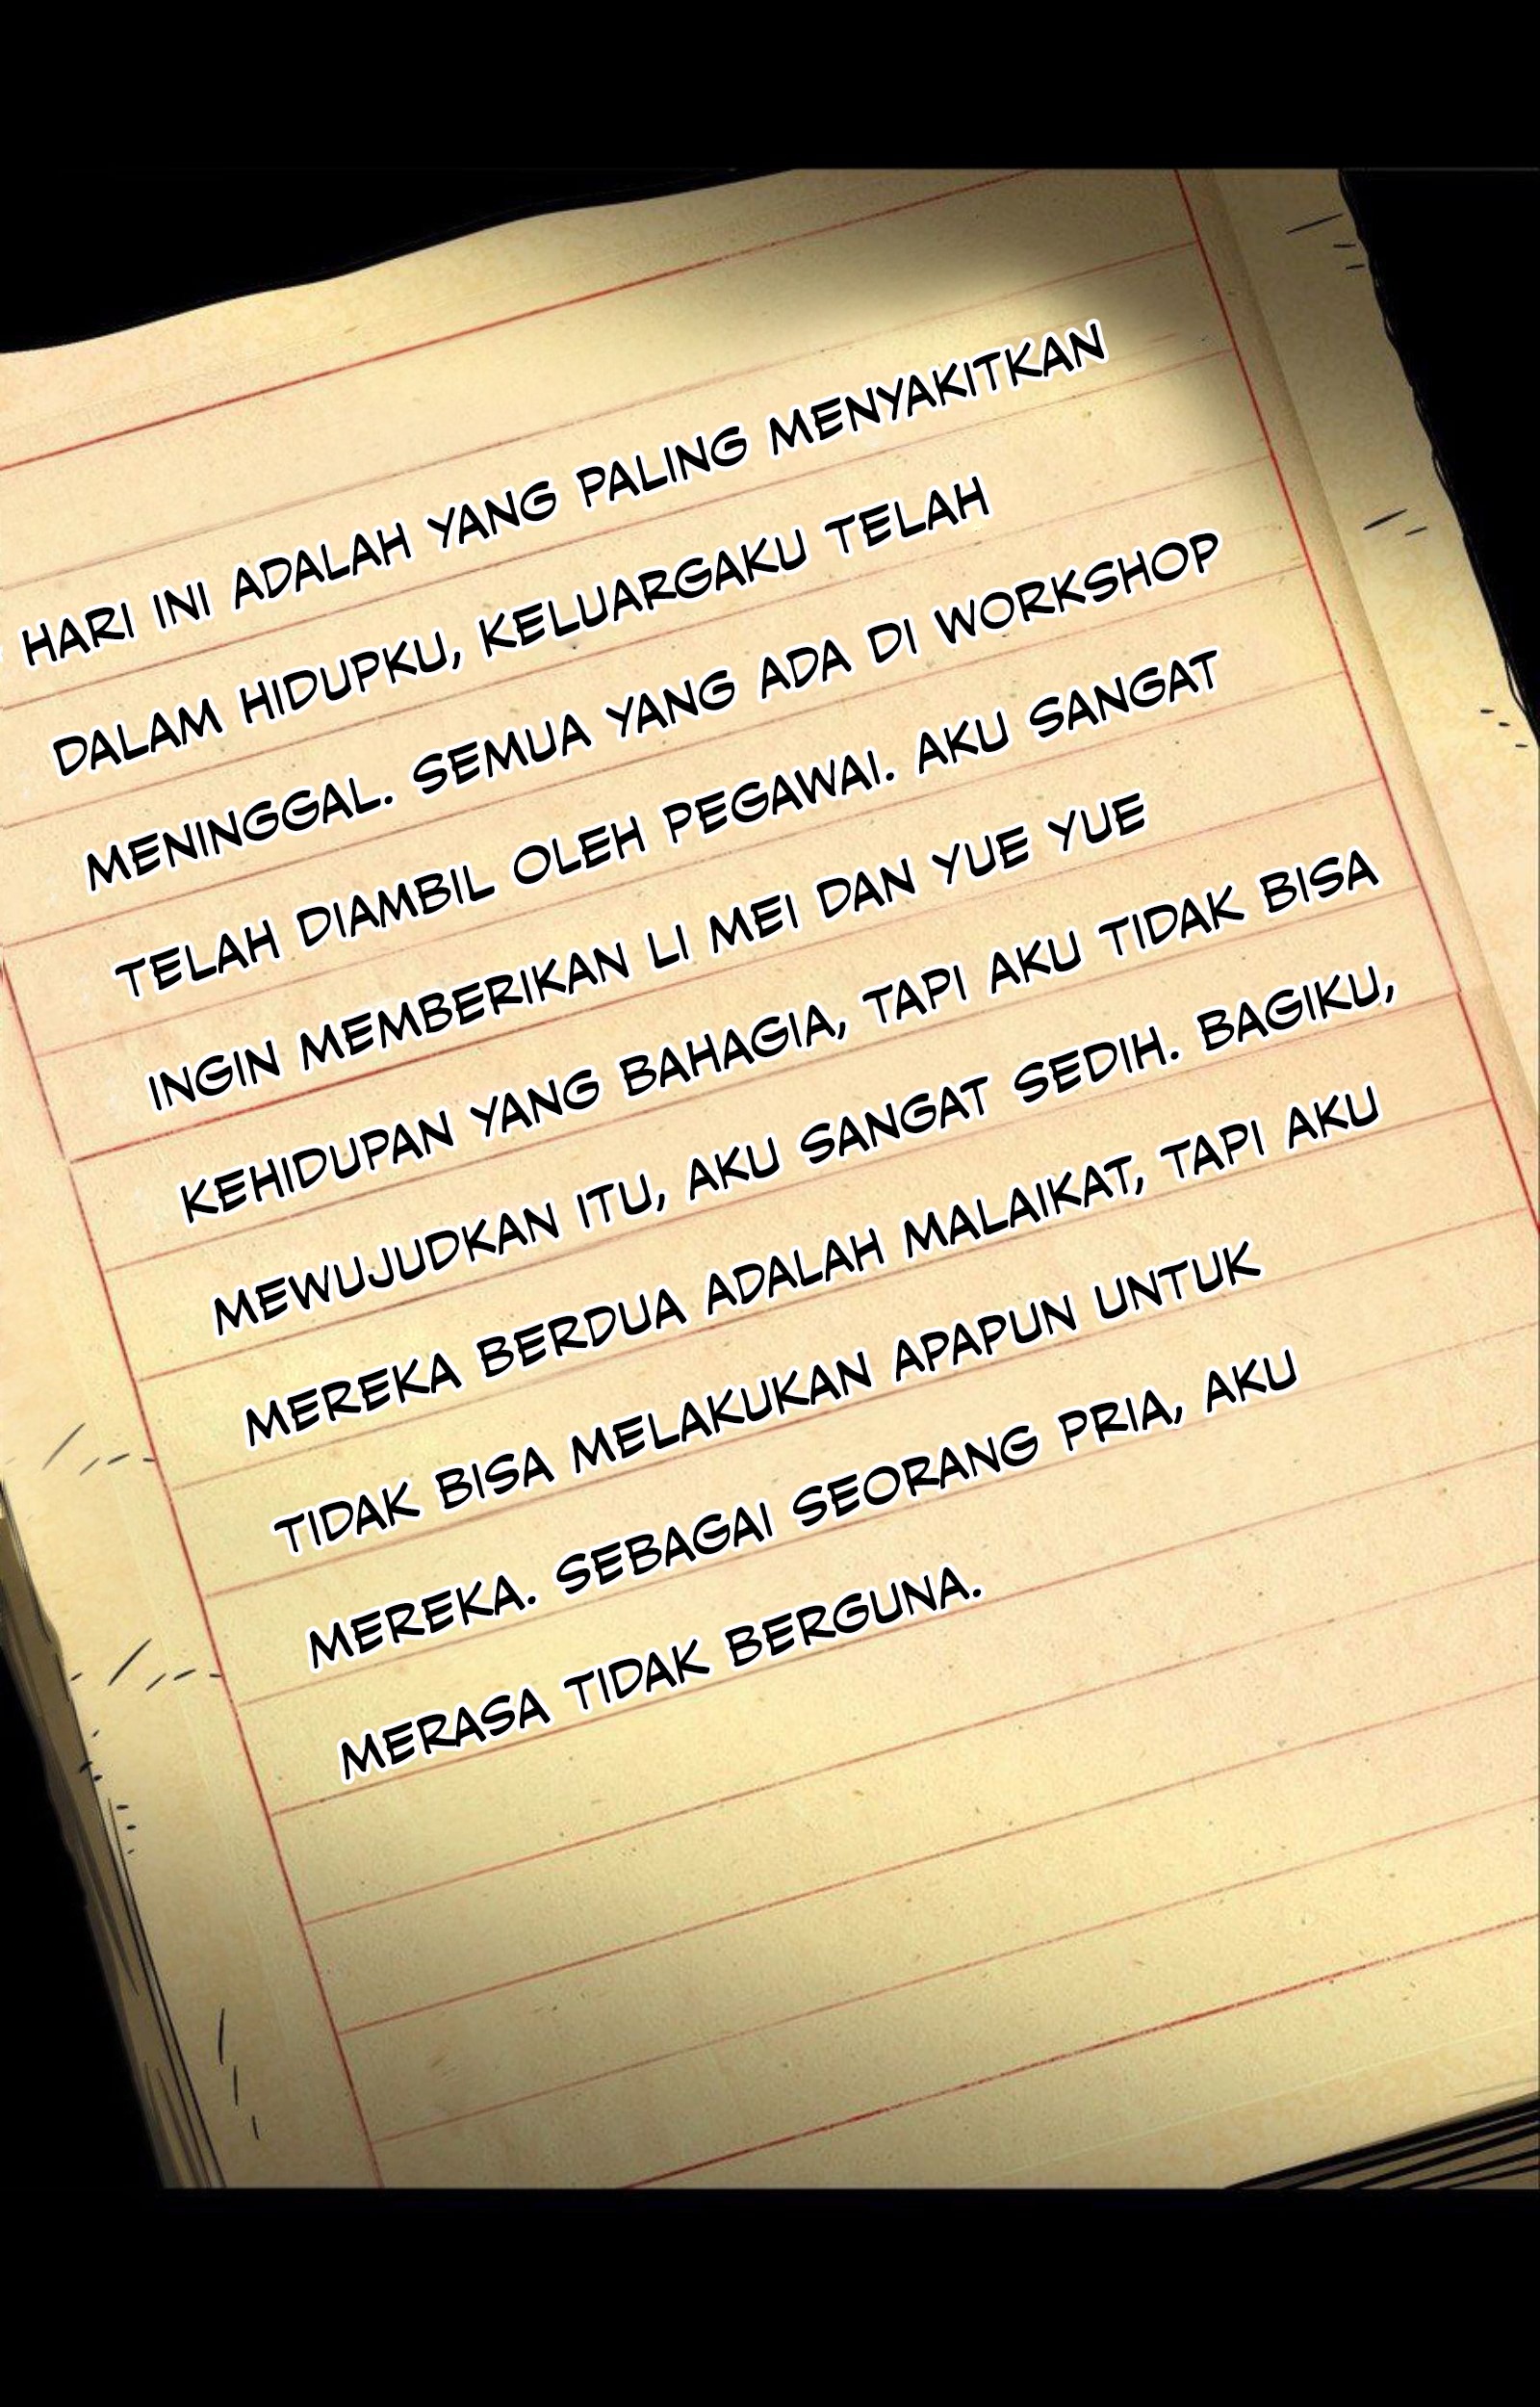 HARI INI ADALAH YANG PALING MENYAKITKAN
DALAM HIDUPKU, KELUARGAKU TELAH
MENINGGAL. SEMUA YANG ADA DI WORKSHOP
TELAH DIAMBIL OLEH PEGAWAI. AKU SANGAT
INGIN MEMBERIKAN LI MEI DAN YUE YUE
KEHIDUPAN YANG BAHAGIA, TAPI AKU TIDAK BISA
MEWUJUDKAN ITU, AKU SANGAT SEDIH. BAGIKU,
MEREKA BERDUA ADALAH MALAIKAT, TAPI AKU
TIDAK BISA MELAKUKAN APAPUN UNTUK
MEREKA. SEBAGAI SEORANG PRIA, AKU
MERASA TIDAK BERGUNA.